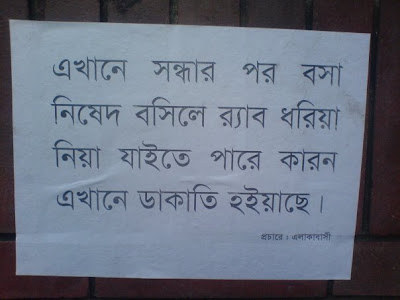 এখানে সন্ধার পর বসা
নিষেদ বসিলে র‍্যাব ধরিয়া
নিয়া যাইতে পারে কারন
এখানে ডাকাতি হইয়াছে।
প্রচারে : এলাকাবাসী